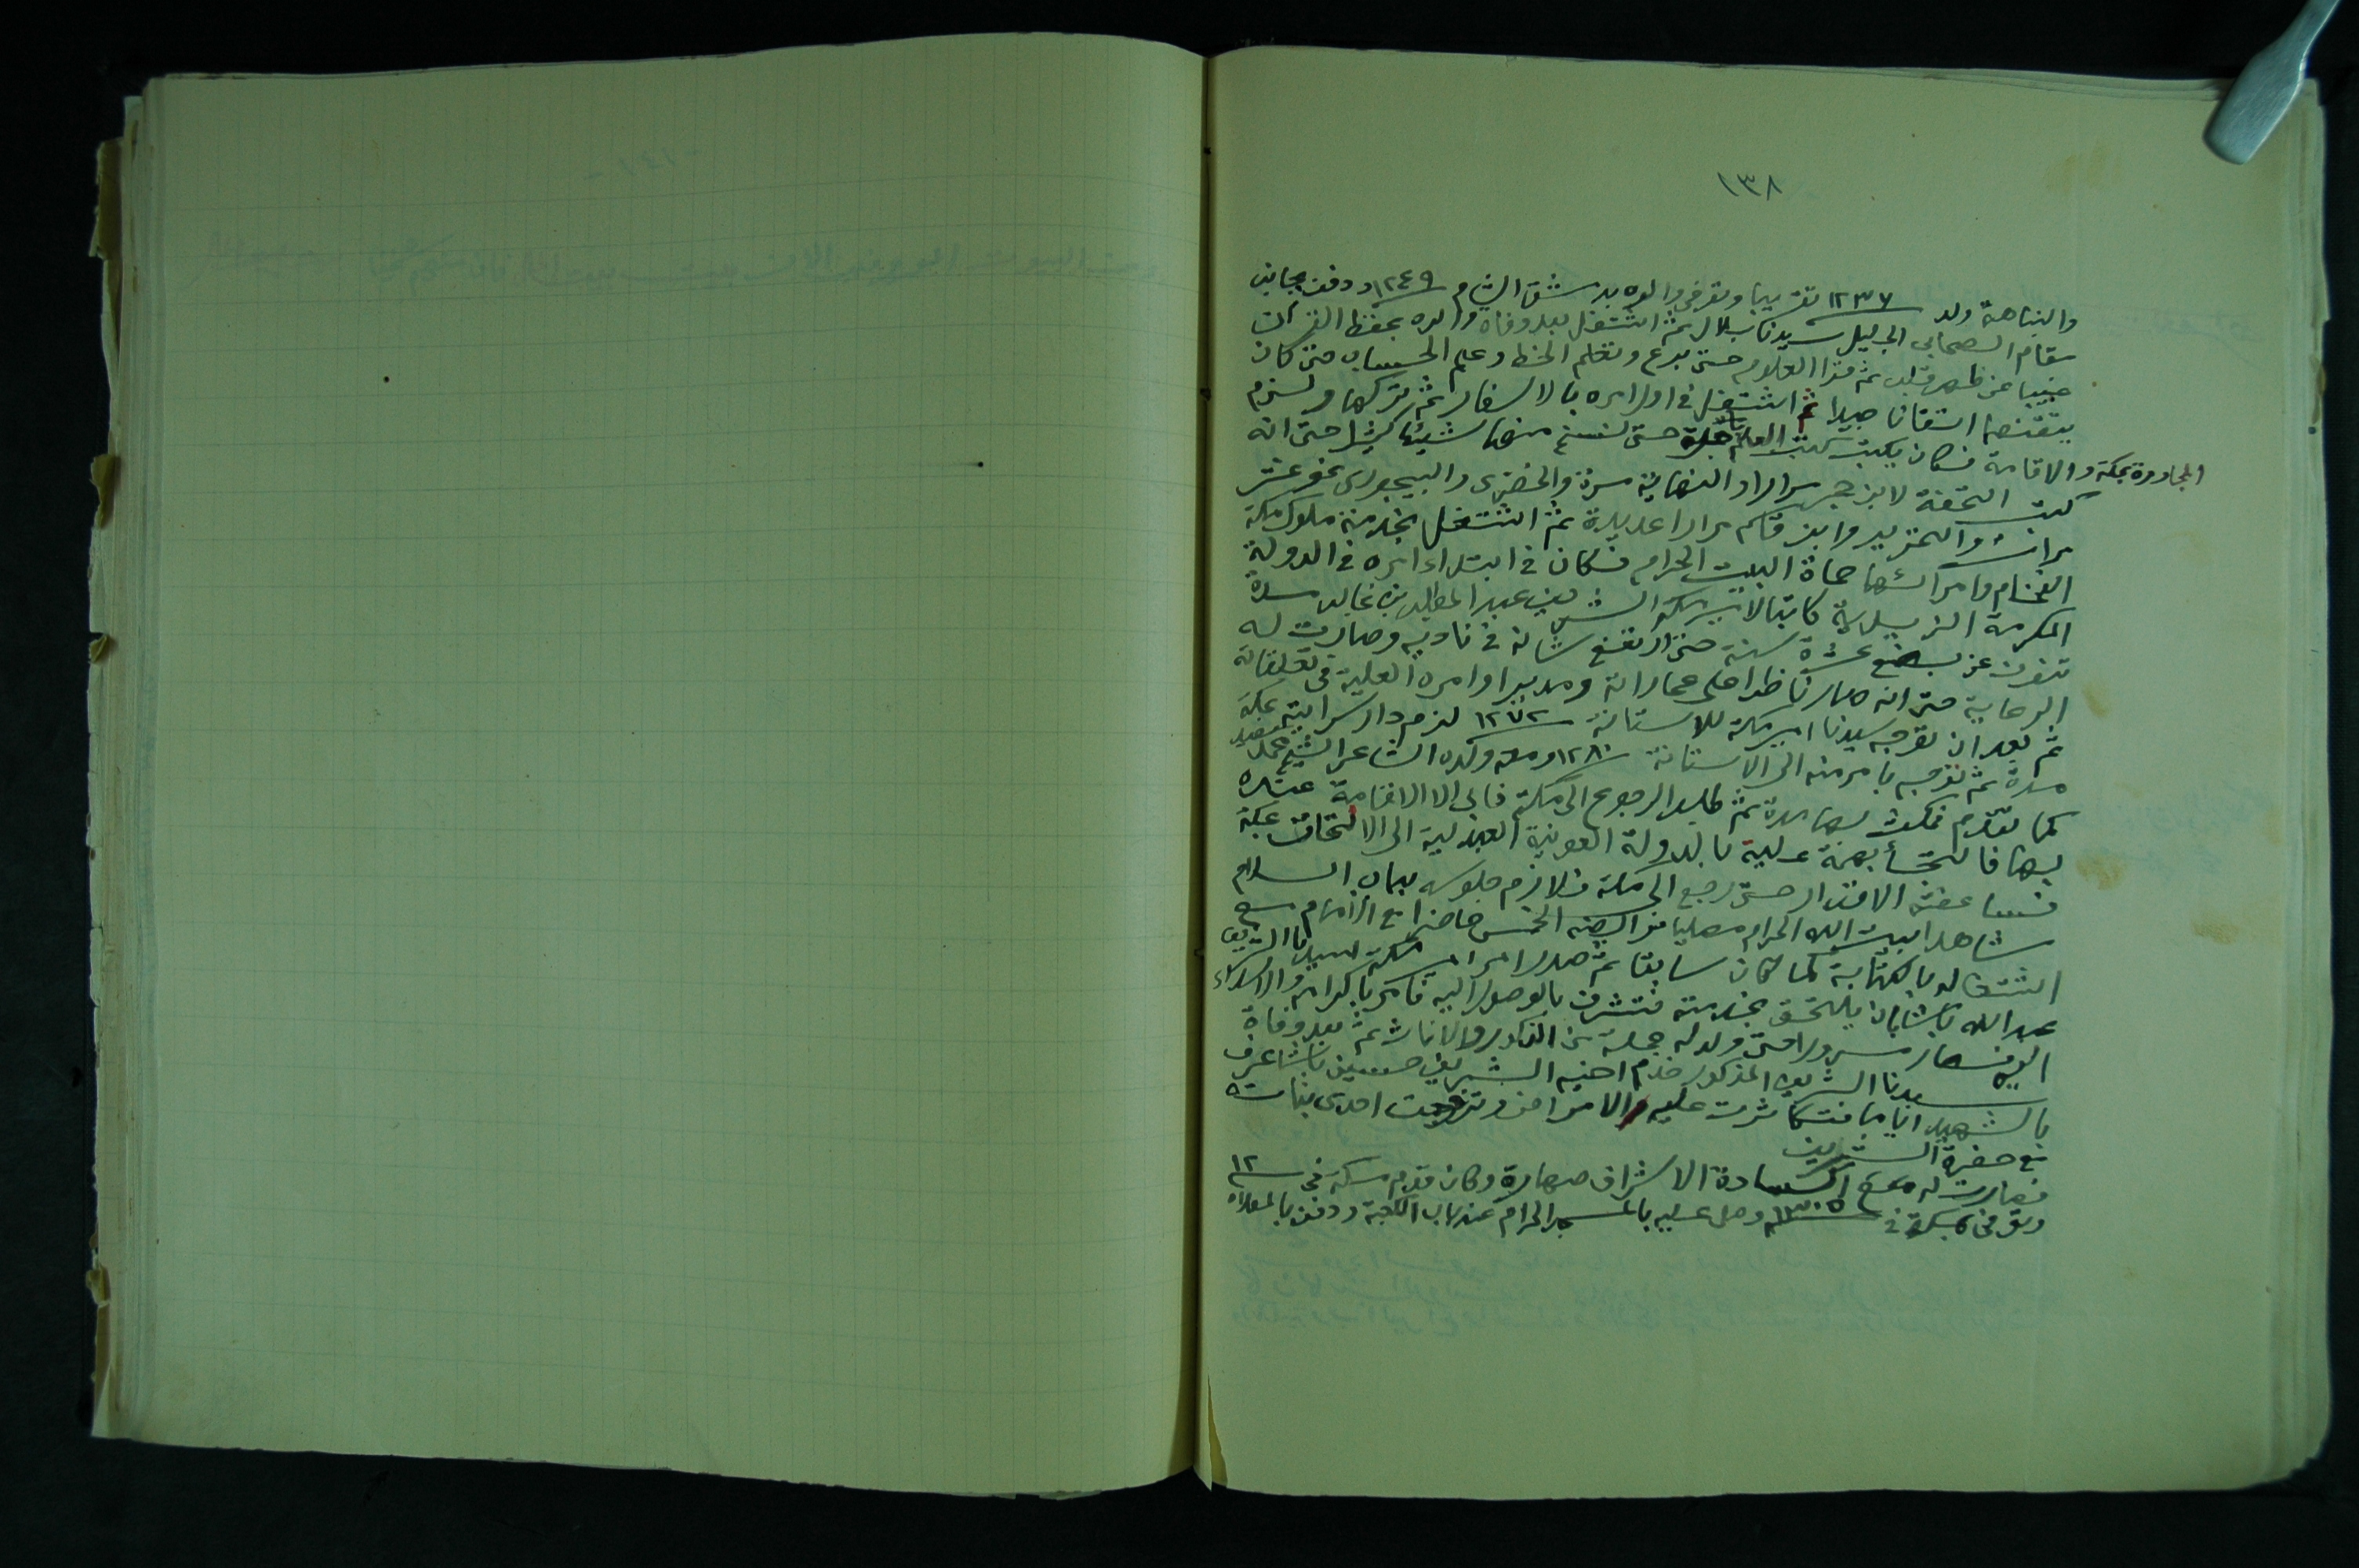 ١٣٨
والنباهة ولد ١٢٣٧ تقريبا وتوفى والده بدمشق الشام ١٢٤٩ ودفن بجانب
مقام الصحابى الجليل سيدنا بلال ثم اشتغل بعد وفاة والده بحفظ القرآن
غيبا عن ظهر قلب ثم قرا العلوم حتى برع وتعلم الخط وعلم الحساب حتى كان
يتقنها اتقانا جيدا ثم اشتغل فى اول امره بالاسفار ثم تركها ولزم
المجاورة بمكة والاقامة فكان يكتب كتب العلم حتى نسخ منها شيئا كثيرا حتى انه
كتب التحفة لابن حجر مرارا والنهاية مرة والخضرى والبيجورى نحو عشر
مرات والتحرير وابن قاسم مرارا عديدة ثم اشتغل بخدمة ملوك مكة
الفخام وامرائها حماة البيت الحرام فكان فى ابتداء امره فى الدولة
المكرمة الزيدية كاتبا لامير مكة الشريف عبد المطلب بن غالب مدة
تنوف عن بضع عشرة سنة حتى ارتفع شانه فى ناديه وصارت له
الرعاية حتى انه صار ناظرا على عماراته ومدبرا اوامره العلية فى تعلقاته
ثم بعد ان توجه سيدنا امير مكة للاستانة ١٢٧٢ لزم دار سرايته بمكة
مدة ثم توجه بامر منه الى الاستانة ١٢٨٠ ومعه ولده الشاعر الشيخ محمد سعيد
كما تقدم فمكث بها مدة ثم طلب الرجوع الى مكة فابى الا الاقامة عنده
بها فالتجأ بهمة علية بالدولة العونية العبدلية الى الالتحاق بمكة
فساعفته الاقدار حتى رجع الى مكة فلازم جلوسه بباب السلام
مشاهدا لبيت الله الحرام مصليا فرائضه الخمس حاضرا مع الامام مع
اشتغاله بالكتابة كما كان سابقا ثم صدر امر امير مكة سيدنا الشريف
عبد الله باشا بان يلتحق بخدمته فتشرف بالوصول اليه فامر باكرامه والاسداء
اليه فصار مسرورا حتى ولد له جملة من الذكور والاناث ثم بعد وفاة
سيدنا الشريف المذكور خدم اخيه الشريف حسين باشا عرف
بالشهيد اياما فتكاثرت عليه الامراض وتزوجت احدى بناته
مع حضرة الشريف
فصارت له مع السادة الاشراف مصاهرة وكان قدم مكة فى ١٢
وتوفى بمكة فى ١٣٠٥ وصلى عليه بالمسجد الحرام عند باب الكعبة ودفن بالمعلاة